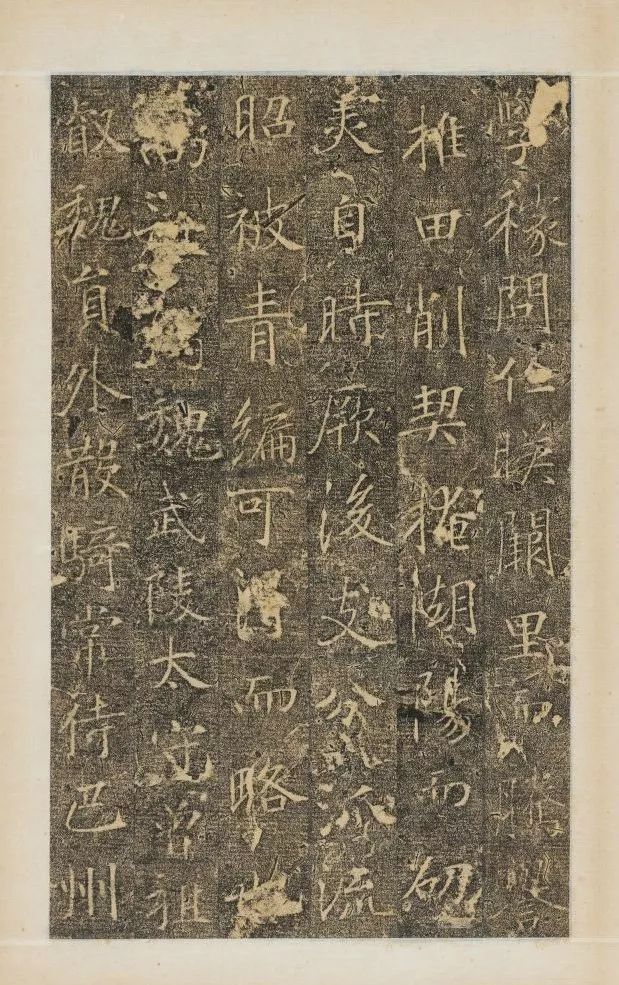 學稼問仁暎闕里而騰譽
推田削契掩湖陽而劭
美自時厥後支分派流
昭被青編可得而略也
高祖魏武陵太守曾祖
叡魏員外散騎常侍巴州